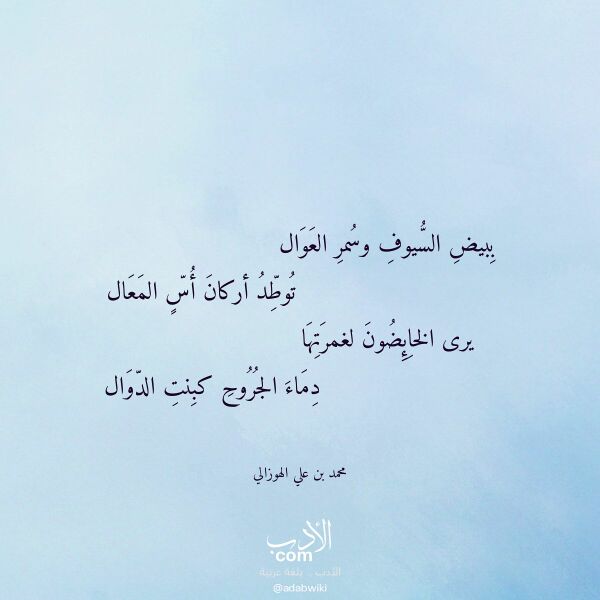 بِبيضِ السُّيوفِ وسُمرِ العَوَال
تُوطِّدُ أركانَ أُسٍّ المَعَال
يرى الخايِضُونَ لغمرَتِهَا
دِمَاءَ الجُرُوحِ كبِنتِ الدّوَال
محمد بن علي الهوزالي
الأدب
com
الأدب .. بلغة عربية
@adabwiki